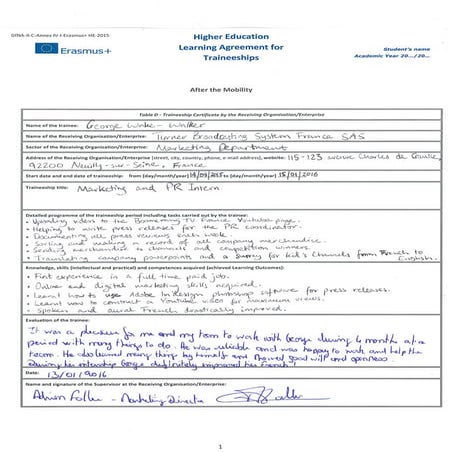 GfNA-II-C-Annex IV-I-Erasmus+ HE-2015
Erasmus+
Higher Education
Learning Agreement for
Traineeships
Student's name
Academic Year 20.../20...
After the Mobility
Table D - Traineeship Certificate by the Receiving Organisation/Enterprise
Name of the trainee: George
Name of the Receiving Organisation/Enterprise: Turner Broadcasting System France SAS
Sector of the Receiving Organisation/Enterprise: Marketing Department
Address of the Receiving Organisation/Enterprise (street, city, country, phone, e-mail address), website: 115-123 avenue Charles de Gaulle,
92200 Neuilly-sur-Seine, France
Start date and end date of traineeship: from (day/month/year) 14/09/2015 to (day/month/year) 15/01/2016
Traineeship title: Marketing and PR Intern
Detailed programme of the traineeship period including tasks carried out by the trainee:
- Uploading videos to the Boomerang TV France Youtube page.
- Helping to write press releases for the PR coordinator.
- Documenting all press reviews each week.
- Sorting and making a record of all company merchandise.
- Sending merchandise to channels and competition winners
- Translating company powerpoints and a survey for kid's channels from French to
English.
Knowledge, skills (intellectual and practical) and competences acquired (achieved Learning Outcomes):
- First experience in a full time paid job.
- Online and digital marketing skills acquired.
- Learnt how to use Adobe InDesign photoshop software for press releases.
- Learnt how to construct a Youtube video for maximum views.
- Spoken and aural French drastically improved.
Evaluation of the trainee:
It was a pleasure for me and my team to work with George during 4 months at a
period with many things to do. He was reliable and was happy to work and help the
team. He also learned many things by himself and showed good will and openness.
During his internship George definitely improved his French!
Date: 13/01/2016
Name and signature of the Supervisor at the Receiving Organisation/Enterprise:
- Marketing Director
1